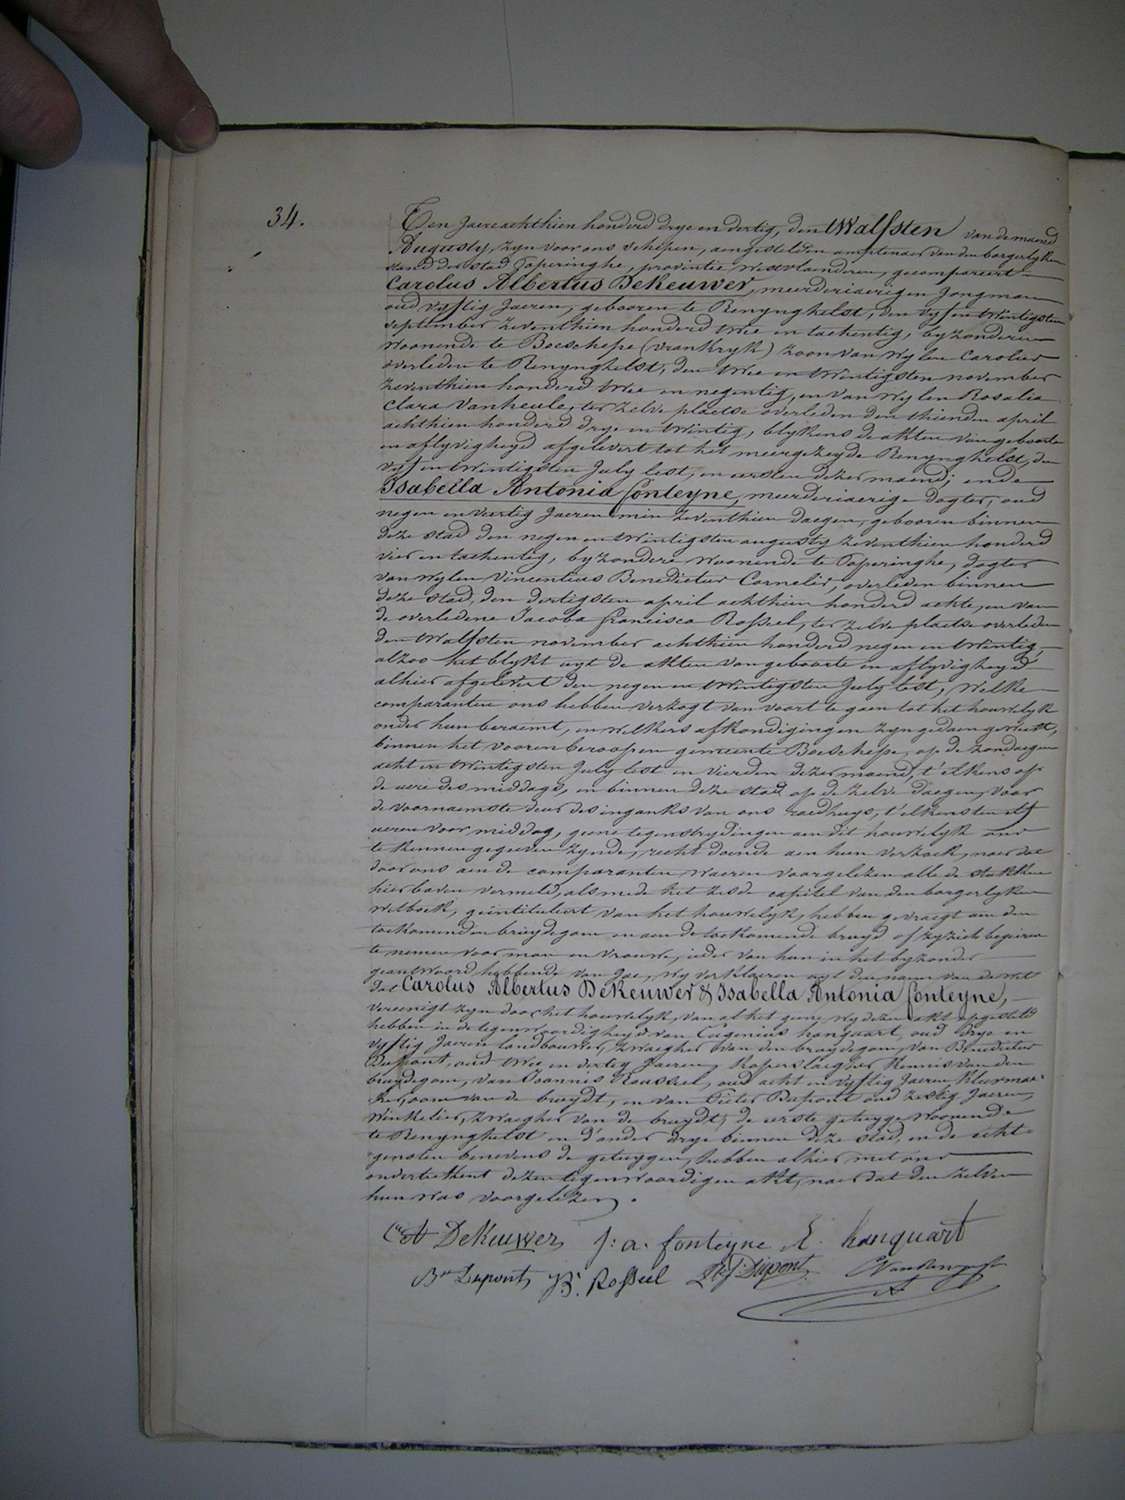 34.
Ten Jaere achthien honderd drye en dertig, den twalfsten van de maend
Augusty, zyn voor ons schepen, aengestelden amptenaer van den borgerlyken
stand der stad Poperinghe, provintie Westvlanderen, gecompareert
Carolus Albertus DeKeuwer, meerderjaerigen Jongman
oud vyftig Jaeren, gebooren te Renynghelst, den vyf en twintigsten
september zeventhien honderd twee en tachentig, byzonderen
woonende te Boeschepe (Vrankryk) zoon van wylen Carolus
overleden te Renynghelst, den twee en twintigsten november
zeventhien honderd twee en negentig, en van wylen Rosalia
Clara Vanheule, ter zelve plaetse overleden den thienden april
achthien honderd drye en twintig, blykens de akten van geboorte
en aflyvigheyd afgelevert tot het meergezeyde Renynghelst, den
vyf en twintigsten July lest, en eersten dezer maend; ende
Isabella Antonia Fonteyne, meerderjaerige dogter, oud
negen en veertig Jaeren min zeventhien daegen, gebooren binnen
deze stad den negen en twintigsten augusty zeventhien honderd
vier en tachentig, byzondere woonende te Poperinghe, dogter
van wylen Vincentius Benedictus Cornelis, overleden binnen
deze stad, den dertigsten april achthien honderd achte, en van
de overledene Jacoba Francisca Rossel, ter zelve plaetse overleden
den twalfsten november achthien honderd negen en twintig,
alzoo het blykt uyt de akten van geboorte en aflyvigheyd
alhier afgelevert den negen en twintigsten July lest, welke
comparanten ons hebben verzogt van voort te gaen tot het houwelyk
onder hun beraemt, en welkers afkondigingen zyn gedaen geweest,
binnen het vooren beroopen gemeente Boeschepe, op de zondagen
acht en twintigsten July lest en vierden dezer maend, t'elkens op
de uere des middags, en binnen deze stad op de zelve daegen, voor
de voornaemste deur des inganks van ons raedhuys, t'elkens ten elf
ueren voor middag, geene tegenstrydingen aen dit houwelyk ons
te kennen gegeeven zynde, recht doende aen hun verzoek, naer dat
door ons aen de comparanten waeren voorgelezen alle de stukken
hier boven vermeld, als mede het zesde capitel van den borgerlyken
wetboek, geintituleert van het houwelyk, hebben gevraegt aen den
toekomenden bruydegom en aen de toekomende bruyd of zy zich begeeren
te nemen voor man en vrouwe, ieder van hun in het byzonder
geantwoord hebbende van Jae, wy verklaeren uyt den naem van de wet
dat Carolus Albertus DeKeuwer & Isabella Antonia Fonteyne,
vereenigt zyn door het houwelyk, van al het gene wy dezen akt opgesteld
hebben in de tegenwoordigheyd van Eugenius hanquart, oud drye en
vyftig Jaeren landbouwer, zwaeger van den bruydegom, van Benedictus
Dupont, oud twee en dertig Jaeren, koperslaeger, kennis van den
bruydegom, van Joannis Roussel, oud acht en vyftig Jaeren kleermae-
ker, oom van de bruydt, en van Pieter Dupont oud zestig Jaeren,
winkelier, zwaegher van de bruydt, de eerste getuyge woonende
te Renynghelst en d'ander drye binnen deze stad, en de echt-
genoten benevens de getuygen, hebben alhier met ons
onderteekent dezen tegenwoordigen akt, naer dat den zelven
hun was voorgelezen.
C A DeKeuwer J: a. fonteyne E. hanquart
Bn Dupont JB. Rossel P J Dupont